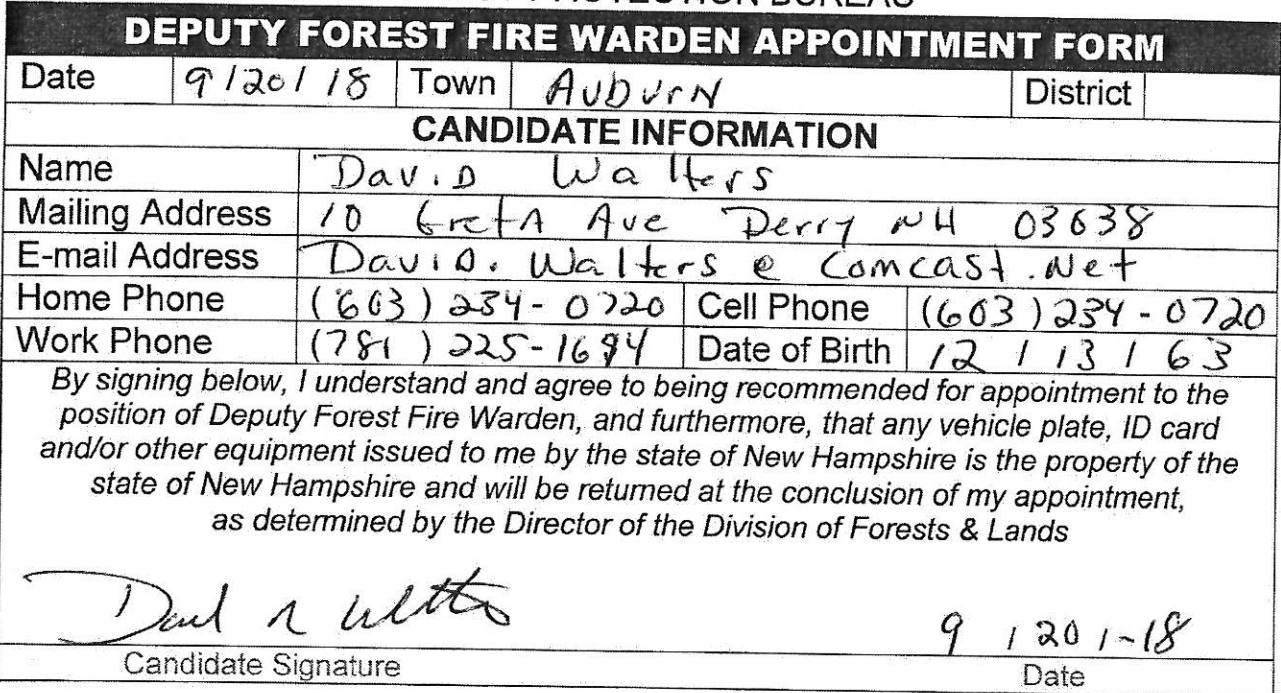 PROTECTION BUREAU
DEPUTY FOREST FIRE WARDEN APPOINTMENT FORM
Date 9/20/18 Town Auburn District
CANDIDATE INFORMATION
Name David Walters
Mailing Address 10 GretA Ave Derry NH 03038
E-mail Address DaviD.Walters@Comcast.Net
Home Phone (603) 234-0720 Cell Phone (603) 234-0720
Work Phone (781) 225-1694 Date of Birth 12/13/63
By signing below, I understand and agree to being recommended for appointment to the
position of Deputy Forest Fire Warden, and furthermore, that any vehicle plate, ID card
and/or other equipment issued to me by the state of New Hampshire is the property of the
state of New Hampshire and will be returned at the conclusion of my appointment,
as determined by the Director of the Division of Forests & Lands
9/20/-18
Candidate Signature Date